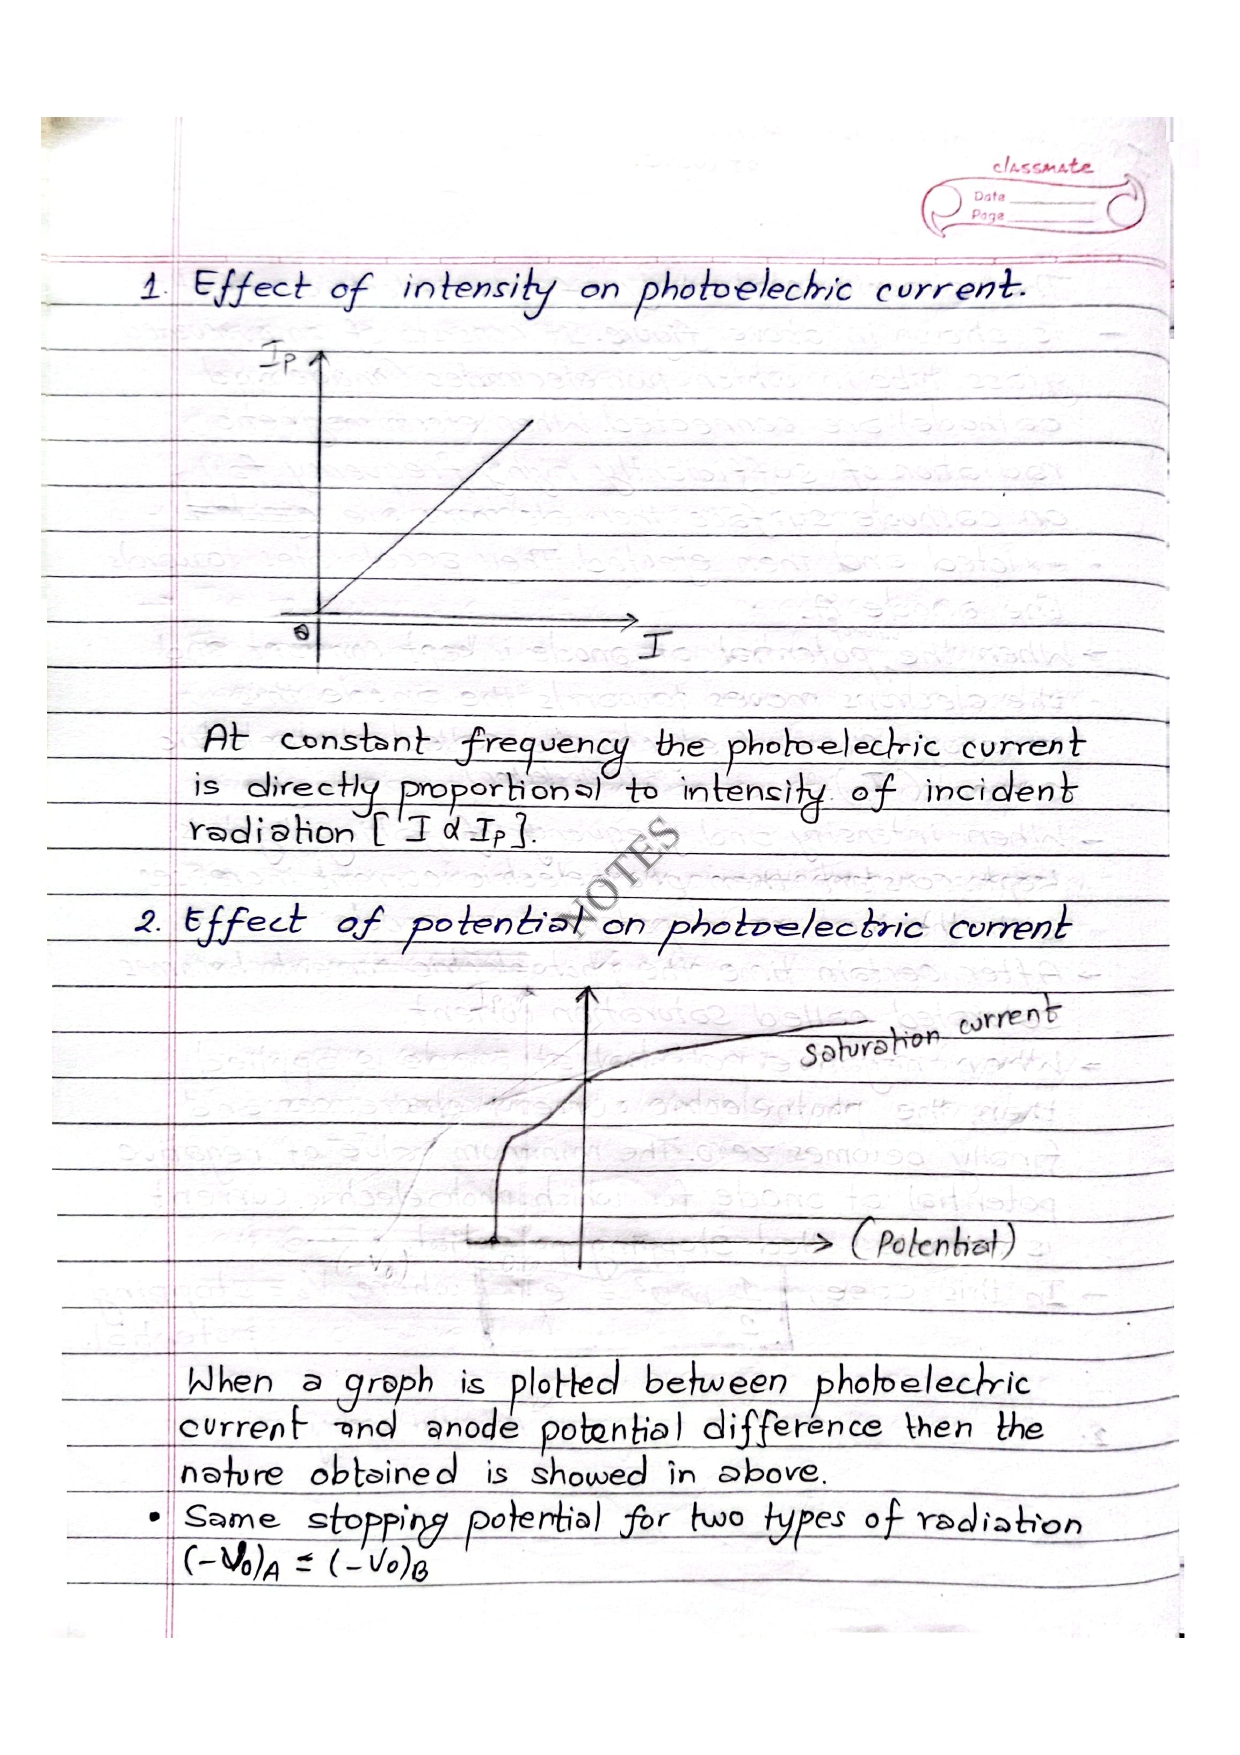 classmate
Date
Page
1. Effect of intensity on photoelectric current.
Ip
0
I
At constant frequency the photoelectric current
is directly proportional to intensity of incident
radiation [ I α Ip ].
NOTES
2. Effect of potential on photoelectric current
saturation current
(Potential)
When a graph is plotted between photoelectric
current and anode potential difference then the
nature obtained is showed in above.
• Same stopping potential for two types of radiation
(-V0)A = (-V0)B